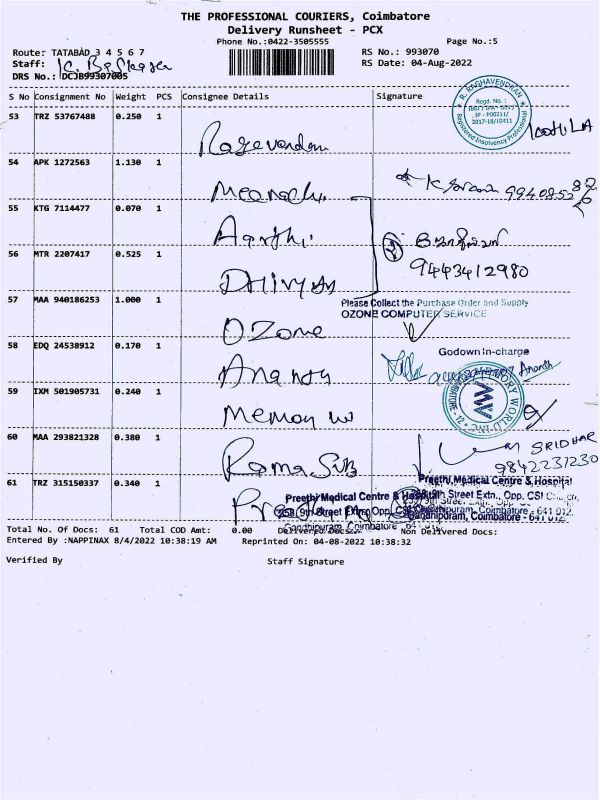 THE PROFESSIONAL COURIERS, Coimbatore
Delivery Runsheet - PCX
Phone No.:0422-3505555
Page No.:5
Route: TATABAD 3 4 5 6 7
RS No.: 993070
Staff: K. Baskaran
RS Date: 04-Aug-2022
DRS No.: DCJB99307005
S No Consignment No Weight PCS Consignee Details Signature
R. RAGHAVENDRAN
Regd. No.:
2017-18/10411
Registered Insolvency Professional
53 TRZ 53767488 0.250 1
Ragavendran
54 APK 1272563 1.130 1
Meenachi
55 KTG 7114477 0.070 1
Aarthi
56 MTR 2207417 0.525 1
Dhivya
9443412980
57 MAA 940186253 1.000 1
Ozone
Please Collect the Purchase Order and Supply
OZONE COMPUTER SERVICE
58 EDQ 24538912 0.170 1
Ananth
Godown In-charge
Ananth
59 IXM 501905731 0.240 1
Memory W
60 MAA 293821328 0.380 1
Rama Sub
SRIDHAR
9842231230
61 TRZ 315150337 0.340 1
Preethi Medical Centre & Hospital
9th Street Extn., Opp. CSI
Gandhipuram, Coimbatore - 641 012.
Preethi Medical Centre & Hospital
9th Street Extn., Opp. CSI
Gandhipuram, Coimbatore
Total No. Of Docs: 61 Total COD Amt: 0.00 Delivered Docs: Non Delivered Docs:
Entered By :NAPPINAX 8/4/2022 10:38:19 AM Reprinted On: 04-08-2022 10:38:32
Verified By Staff Signature